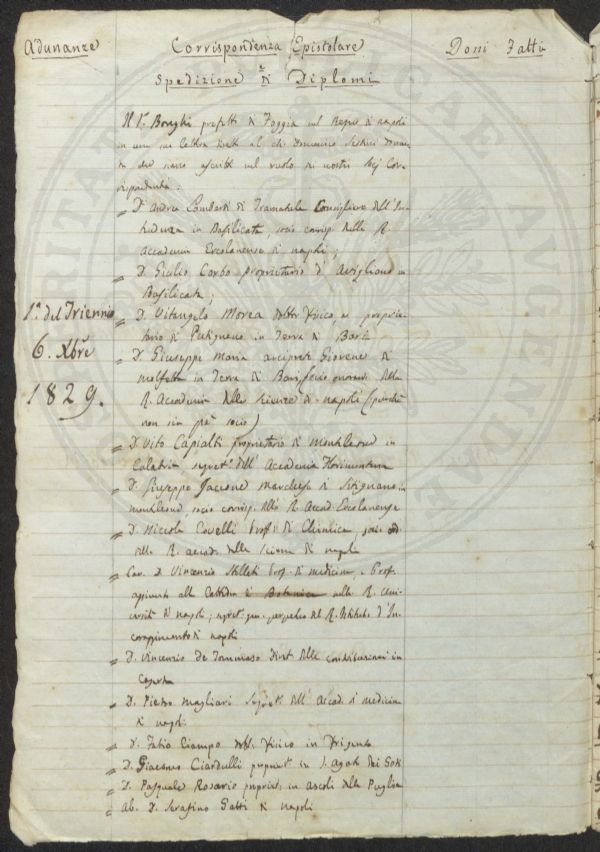 Adunanze
Corrispondenza Epistolare
Doni Fatti
Spedizione di Diplomi
Il S. Borghi prefetti di Foggia nel Regno di napoli
in una sua lettera
sieno ascritti nel ruolo dei nostri Sej Cor-
rispondenti.
= D. Andrea Lombardi di Tramutola Consigliere dell'In-
tendenza in Basilicata, socio corrisp. della R.
Accademia Ercolanense di napoli;
= D. Giulio Corbo proprietario d'Avigliano in
Basilicata;
1.a del Triennio
= D. Vitangelo Morea dottor fisico, e proprie-
tario di Putignano in Terra di Bari
6. Xbre
= D. Giuseppe Maria arciprete Giovene di
molfetta in Terra di Bari, socio onorario della
1829.
R. Accademia delle Scienze di napoli (purché
non sia già socio)
= D. Vito Capialbi proprietario di Monteleone in
Calabria segret.o dell'Accademia Florimontana
= D. Giuseppe marchese di in
monteleone socio corrisp. della R. Accad. Ercolanense
= D. Niccola Covelli profr. di Chimica, socio
della R. accad. delle scienze di napoli
= Cav. D. Vincenzo Stellati Prof. di medicina, e Prof.
aggiunto alla Cattedra di Botanica nella R. Uni-
versità di napoli; segret. gen. perpetuo del R. Istituto d'In-
coraggimento di napoli
= D. Vincenzio de Tommaso diret. delle in
Caserta
= D. Pietro Magliari Segret.o dell'Accad. di medicina
di napoli
= D. Fabio Ciampo dott. fisico in Frigento
= D. Giacomo Ciardulli propriet. in S. Agata dei Goti
= D. Pasquale Rosario propriet. in ascoli della Puglia
= Ab. D. Serafino Gatti di napoli